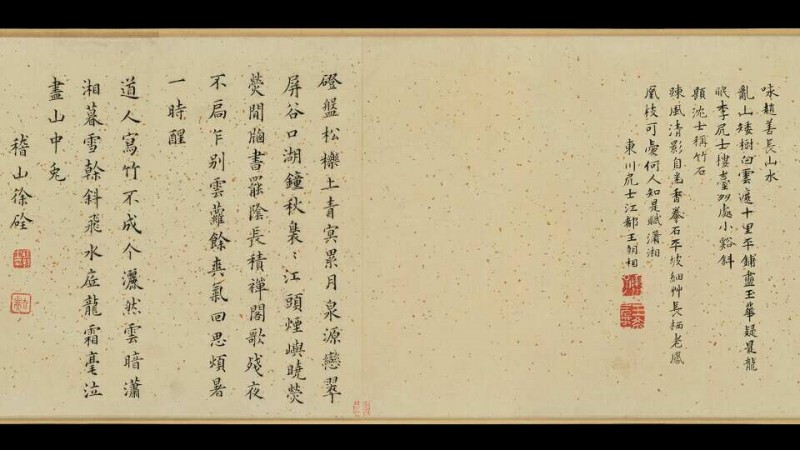 咏趙善長山水
亂山矮樹白雲遮十里平鋪盡玉華疑是龍
眠李居士樓臺如處小谿斜
題沈士稱竹石
踈風清影自
拳石平坡細艸長栖老鳳
鳳枝可處何人知是賦瀟湘
東川居士江都王
磴盤松櫟上青冥累月泉源戀翠
屏谷口湖鐘秋裊〻江頭煙嶼曉熒
熒閒胸書罷陰長積禪閣歌殘夜
不扃乍別雲蘿餘爽氣回思煩暑
一時醒
道人寫竹不成个灑然雲暗瀟
湘暮雪榦斜飛水底龍霜毫泣
盡山中兔
稽山徐硂